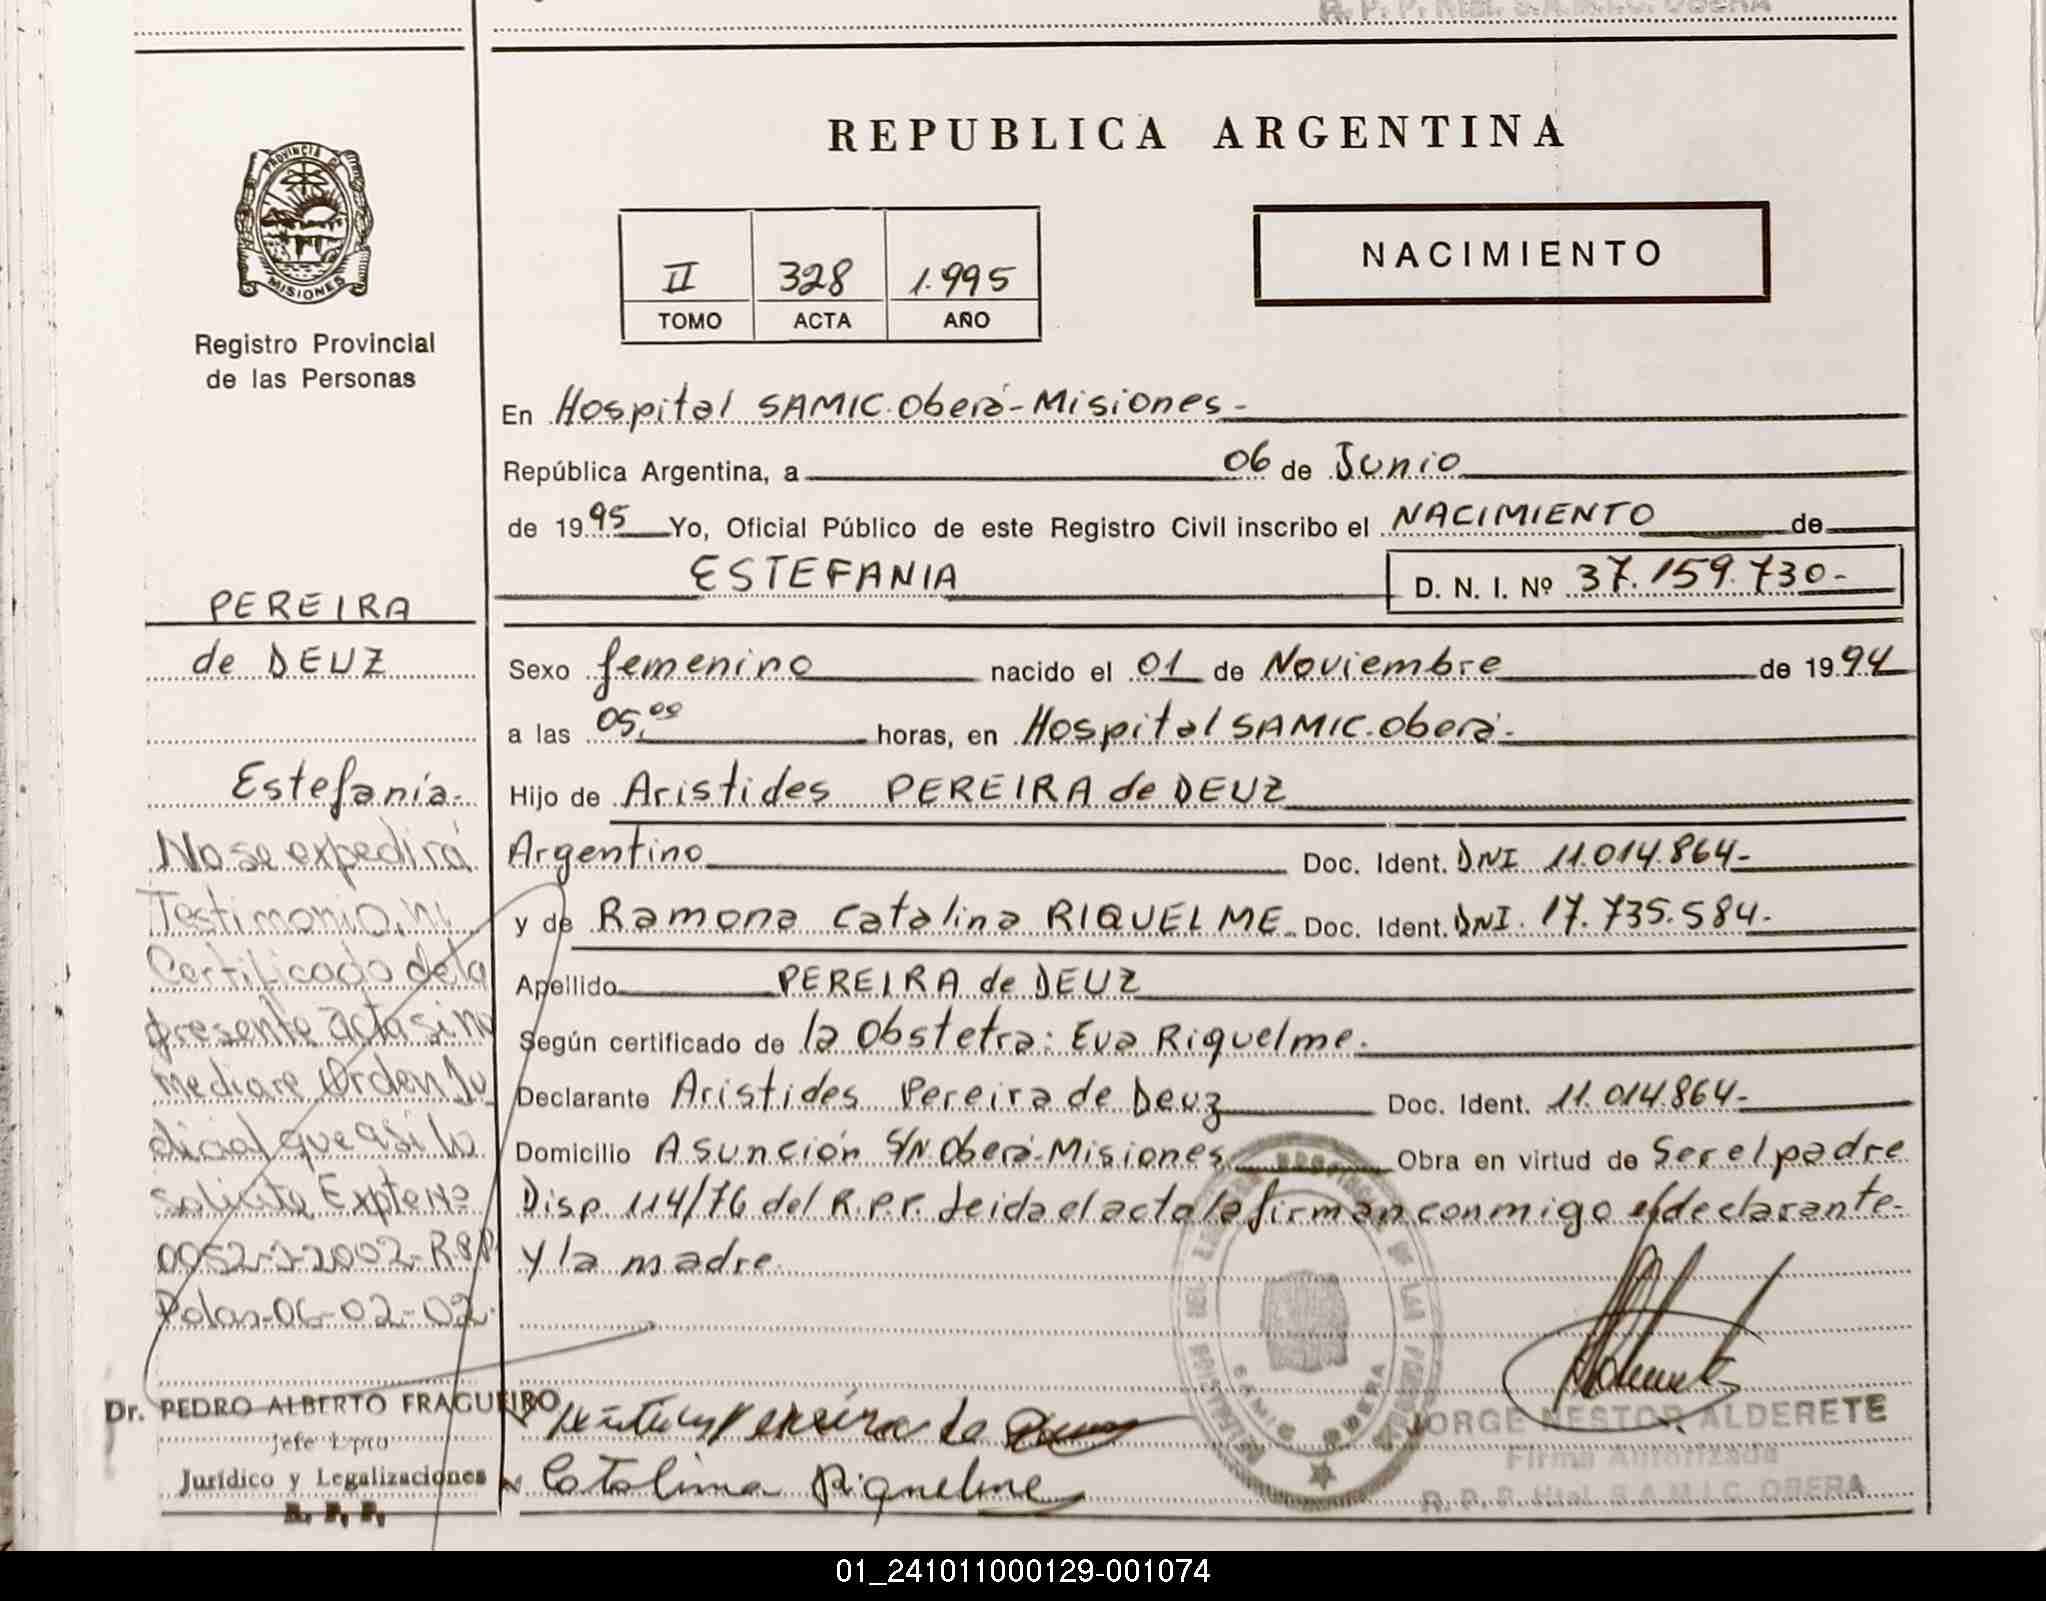 REPUBLICA ARGENTINA
PROVINCIA D
MISIONES
Registro Provincial
de las Personas
II 328 1.995
TOMO ACTA AÑO
NACIMIENTO
En Hospital SAMIC. Oberá-Misiones-
República Argentina, a 06 de Junio
de 1995 Yo, Oficial Público de este Registro Civil inscribo el NACIMIENTO de
ESTEFANIA D. N. I. Nº 37.159.730-
Sexo femenino nacido el 01 de Noviembre de 1994
a las 05,00 horas, en Hospital SAMIC. Oberá.
Hijo de Aristides PEREIRA de DEUZ
Argentino Doc. Ident. DNI 11.014.864-
y de Ramona Catalina RIQUELME. Doc. Ident. DNI. 17.735.584-
Apellido PEREIRA de DEUZ
Según certificado de la Obstetra: Eva Riquelme.
Declarante Aristides Pereira de Deuz Doc. Ident. 11.014.864-
Domicilio Asunción S/N Oberá-Misiones Obra en virtud de Ser el padre
Disp. 114/76 del R.P.P. Leida el acta la firman conmigo el declarante-
y la madre.
Catalina Riquelme
JORGE NESTOR ALDERETE
Firma Autorizada
R. P. P. Htal. S.A.M.I.C. OBERA
PEREIRA
de DEUZ
Estefanía-
No se expedirá
Testimonio, ni
Certificado de la
presente acta si no
mediare Orden Ju
dicial que así lo
solicite Expte Nº
Pdas-06-02-02-
Dr. PEDRO ALBERTO FRAGUEIRO
Jefe Dpto
Jurídico y Legalizaciones
R. P. P.
01_241011000129-001074